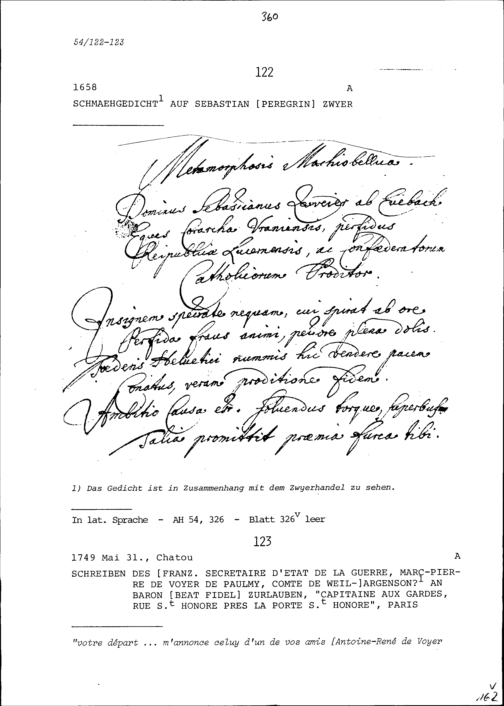 360
54/122-123
122
1658 A
SCHMAEHGEDICHT¹ AUF SEBASTIAN [PEREGRIN] ZWYER
Metamorphosis Machiobellica.
Dominus Sebastianus ab Euebach
Eques Vraniensis, perfidus
Reipublica Lucernensis, ac Confœderatorum
Catholicorum Proditor.
Insignem nequam, cui spirat ab ore
Perfida fraus animi, pectore plena dolis.
Foederis Heluetici nummis hic vendere pacem
Conatus, veram proditione fidem.
Ambitio causa est. torques, superbus
Talia promittit præmia furca tibi.
1) Das Gedicht ist in Zusammenhang mit dem Zwyerhandel zu sehen.
In lat. Sprache - AH 54, 326 - Blatt 326ᵛ leer
123
1749 Mai 31., Chatou A
SCHREIBEN DES [FRANZ. SECRETAIRE D'ETAT DE LA GUERRE, MARC-PIER-
RE DE VOYER DE PAULMY, COMTE DE WEIL-]ARGENSON?¹ AN
BARON [BEAT FIDEL] ZURLAUBEN, "CAPITAINE AUX GARDES,
RUE S.ᵗ HONORE PRES LA PORTE S.ᵗ HONORE", PARIS
"votre départ ... m'annonce celuy d'un de vos amis [Antoine-René de Voyer
V
162